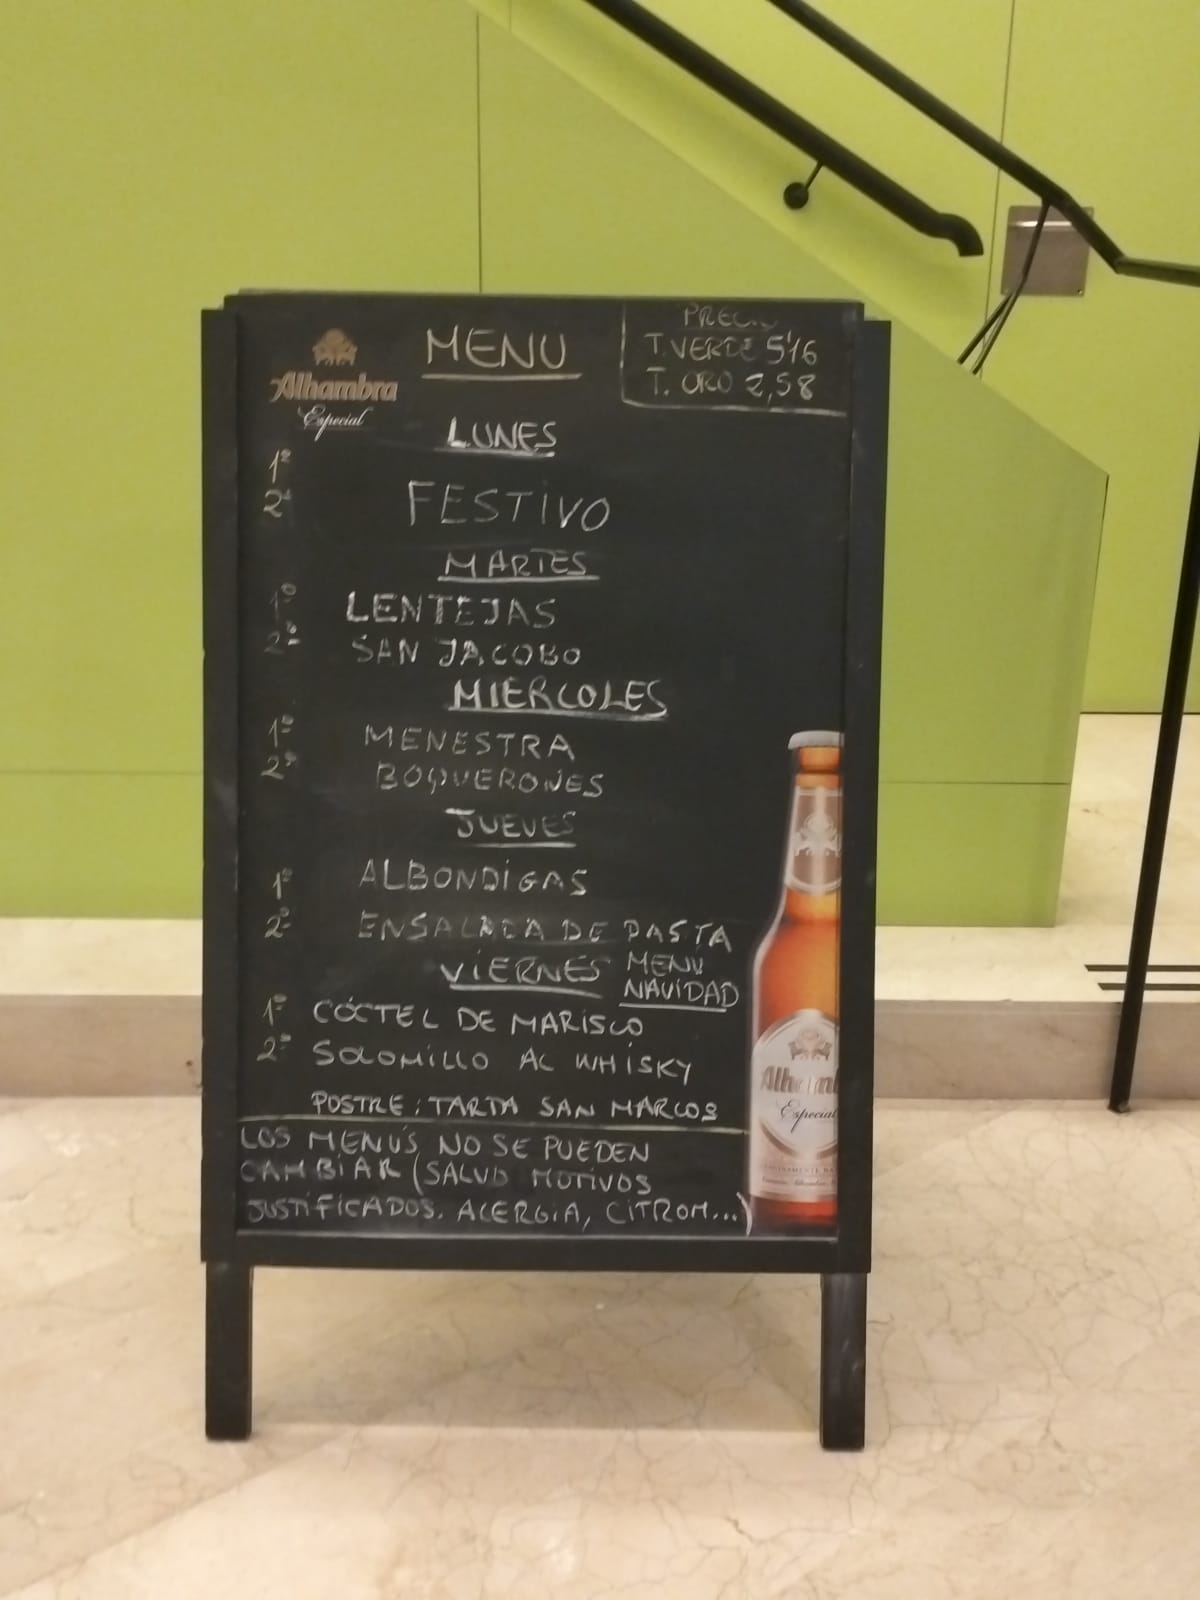 Alhambra
Especial
MENU
PRECIO
T. VERDE 5'16
T. ORO 2,58
LUNES
1º
2º
FESTIVO
MARTES
1º LENTEJAS
2º SAN JACOBO
MIERCOLES
1º MENESTRA
2º BOQUERONES
JUEVES
1º ALBONDIGAS
2º ENSALADA DE PASTA
VIERNES MENU
NAVIDAD
1º CÓCTEL DE MARISCO
2º SOLOMILLO AL WHISKY
POSTRE: TARTA SAN MARCOS
LOS MENUS NO SE PUEDEN
CAMBIAR (SALVO MOTIVOS
JUSTIFICADOS. ALERGIA, CITROM...)
Especial